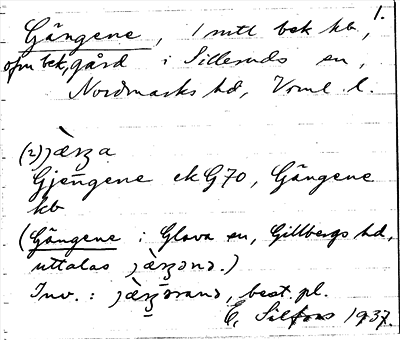 1.
Gängene, 1 mtl bek kb,
ofm bek, gård i Silleruds sn,
Nordmarks hd, Vrml. l.
(2) jæ̀ŋa
Gjengene ek G70, Gängene
kb
(Gängene i Glava sn, Gillbergs hd,
uttalas jæ̀ŋənə.)
Inv.: jæ̀ŋəranə, best. pl.
E. Silfors 1937.